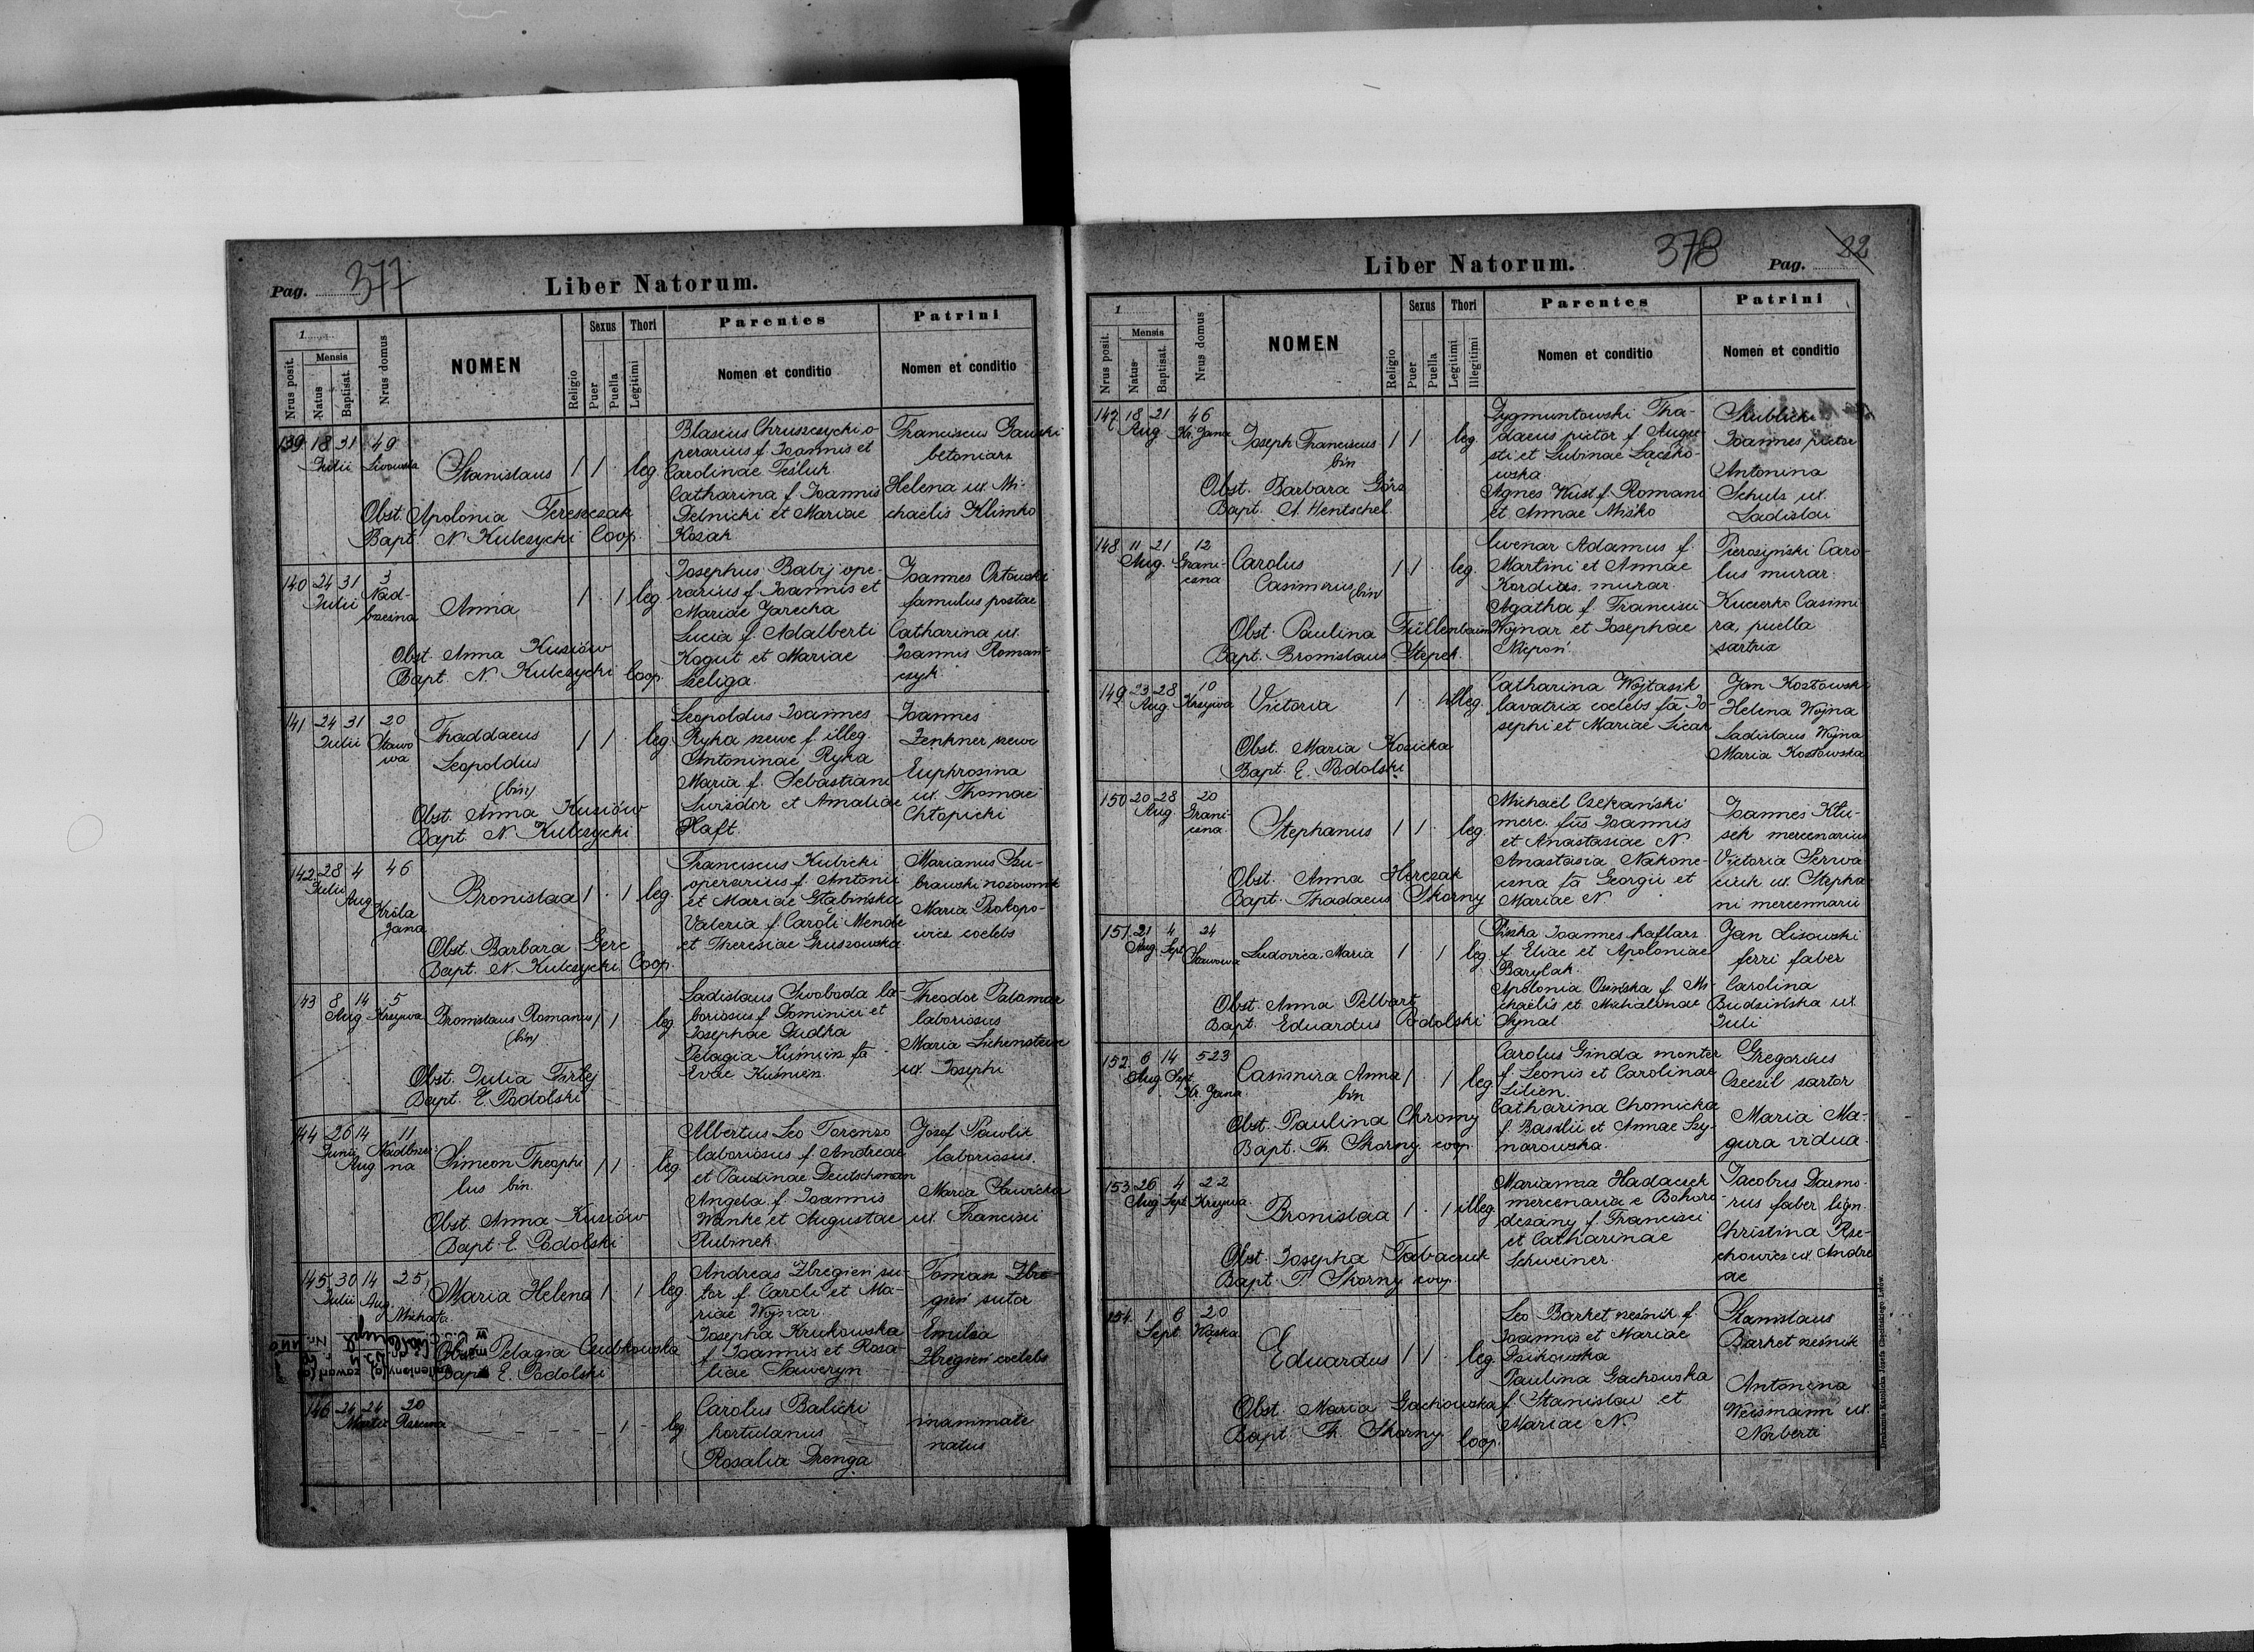 Pag. 377 Liber Natorum.
1
Nrus posit. Mensis Natus Baptisat. Nrus domus NOMEN Religio Sexus Puer Puella Thori Legitimi Parentes Nomen et conditio Patrini Nomen et conditio
139 18 31 49
Julii Lwowska
Stanislaus 1 1 leg
Obst. Apolonia Tereszczak
Bapt. N Kulczycki Coop.
Blasius Chruszczycki o-
perarius f. Joannis et
Carolinae Tesluk
Catharina f. Joannis
Delnicki et Mariae
Kozak
Franciscus Gauski
betoniarz
Helena ux. Mi-
chaelis Klimko
140 24 31 3
Julii Nad-
brzeżna
Anna 1 1 leg
Obst. Anna Kuziów
Bapt. N. Kulczycki Coop
Josephus Babij ope-
rarius f. Joannis et
Mariae Jarecka
Lucia f. Adalberti
Kogut et Mariae
Szeliga
Joannes Ortowski
famulus postae
Catharina ux.
Joannis Roman-
czyk
141 24 31 20
Julii Stawo
wa
Thaddaeus
Leopoldus
(bin)
1 1 leg
Obst. Anna Kuziów
Bapt. N. Kulczycki
Leopoldus Joannes
Ryka szewc f. illeg.
Antoninae Ryka
Maria f. Sebastiani
Swizdor et Amaliae
Haft
Joannes
Zenkner szewc
Euphrosina
ux. Thomae
Chłopicki
142 28 4 46
Julii Aug
Króla
Jana
Bronislaa 1 1 leg
Obst. Barbara Gerc
Bapt. N. Kulczycki Coop.
Franciscus Kubicki
operarius f. Antonii
et Mariae Głabińska
Valeria f. Caroli Mende
et Theresiae Gruszowska
Marianus Szu-
brawski nożownik
Maria Prokopo-
wicz coelebs
143 8 14 5
Aug Krzywa
Bronislaus Romanus
(bin)
1 1 leg
Obst. Julia Firlej
Bapt. E. Podolski
Ladislaus Swoboda la-
boriosus f. Dominici et
Josephae Dudka
Pelagia Kuśnierz fa
Evae Kuśnierz
Theodor Palamar
laboriosus
Maria Lichenstein
ux. Josephi
144 26 14 11
Junii Aug Nadbrzeż
na
Simeon Theophi
lus bin.
1 1 leg
Obst. Anna Kuziów
Bapt. E. Podolski
Albertus Leo Torenzo
laboriosus f. Andreae
et Paulinae Deutschman
Angela f. Joannis
Wanke et Augustae
Rubinek
Jozef Pawlik
laboriosus.
Maria Sawicka
ux. Francisci
145 30 14 25
Julii Aug. Michała
Maria Helena 1 1 leg
Obst. Pelagia Czubkowska
Bapt E. Podolski
Andreas Zbregień su-
tor f. Caroli et Ma-
riae Wojnar
Josepha Krukowska
f. Joannis et Rosa-
liae Saweryn
Tomasz Zbre-
gień sutor
Emilia
Zbregień coelebs
146 24 24 20
Martii Rzeczna
1 leg
Carolus Balicki
hortulanus
Rosalia Drenga
inanimate
natus
Liber Natorum. 378 Pag. 22
1
Nrus posit. Mensis Natus Baptisat. Nrus domus NOMEN Religio Sexus Puer Puella Thori Legitimi Illegitimi Parentes Nomen et conditio Patrini Nomen et conditio
147 18 21 46
Aug Kr. Jana
Joseph Franciscus
bin
1 1 leg.
Obst. Barbara Görz
Bapt. A. Hentschel
Zygmuntowski Tha-
daeus pictor f. Augu-
sti et Lubinae Łączko-
wska
Agnes Kust f. Romani
et Annae Misko
Skublicki
Joannes pictor
Antonina
Schulz ux.
Ladislai
148 11 21 12
Aug. Grani-
czna
Carolus
Casimirus (bin)
1 1 leg.
Obst. Paulina Füllenbaum
Bapt. Bronislaus Stepek
Cwenar Adamus f.
Martini et Annae
Kordias. murar.
Agatha f. Francisci
Wojnar et Josephae
Niepoń
Pierożyński Caro-
lus murar.
Kucerka Casimi-
ra, puella
sartrix
149 23 28 10
Aug. Krzywa
Victoria 1 1 illeg.
Obst. Maria Kosicka
Bapt. E. Podolski
Catharina Wojtasik
lavatrix coelebs fa Jo-
sephi et Mariae Sicak
Jan Kozłowski
Helena Wojna
Ladislaus Wojna
Maria Kozłowska
150 20 28 20
Aug. Grani-
czna
Stephanus 1 1 leg.
Obst. Anna Herczak
Bapt. Thadaeus Skorny
Michael Czekański
merc. fus Joannis
et Anastasiae N.
Anastasia Nakone-
czna fa Georgii et
Mariae N
Joannes Klu-
sek mercenarius
Victoria Serwa-
ciuk ux. Stepha-
ni mercennarii
151 21 4 24
Aug. Sept Stawowa
Ludovica Maria 1 1 leg.
Obst Anna Pelbart
Bapt. Eduardus Podolski
Piszka Joannes kaflarz
f. Eliae et Apoloniae
Barylak.
Apolonia Osińska f. Mi-
chaëlis et Michalinae
Synal
Jan Lisowski
ferri faber
Carolina
Budzińska ux.
Juli
152 6 14 523
Aug Sept. Kr. Jana
Casimira Anna
bin
1 1 leg
Obst. Paulina Chromy
Bapt. Th. Skorny coop.
Carolus Ginda monter
f. Leonis et Carolinae
Lilien.
Catharina Chomicka
f. Basilii et Annae Szy-
narowska.
Gregorius
Czeczil sartor
Maria Ma-
gura vidua
153 26 4 22
Aug Sept Krzywa
Bronislaa 1 1 illeg.
Obst. Josepha Tabaczuk
Bapt. T. Skorny coop.
Marianna Hadaczek
mercenaria e Bohoro-
dczany f. Francisci
et Catharinae
Schweiner
Jacobus Darmo-
rus faber lign.
Christina Rze-
chowicz ux. Andre
ae
154 1 6 20
Sept. Wąska
Eduardus 1 1 leg.
Obst. Maria Gachowska
Bapt. Th. Skorny coop.
Leo Barket rzeźnik f.
Joannis et Mariae
Dzikowska
Paulina Gachowska
f. Stanislai et
Mariae N.
Stanislaus
Barket rzeźnik
Antonina
Weismann ux.
Norberti